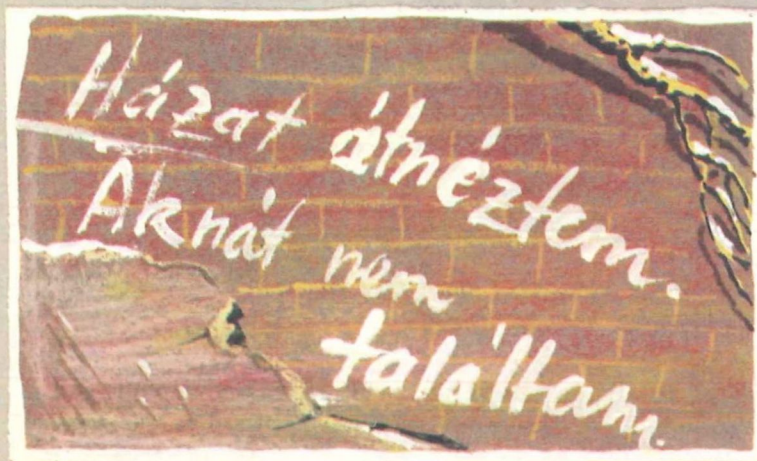 Házat átnéztem.
Aknát nem
találtam.